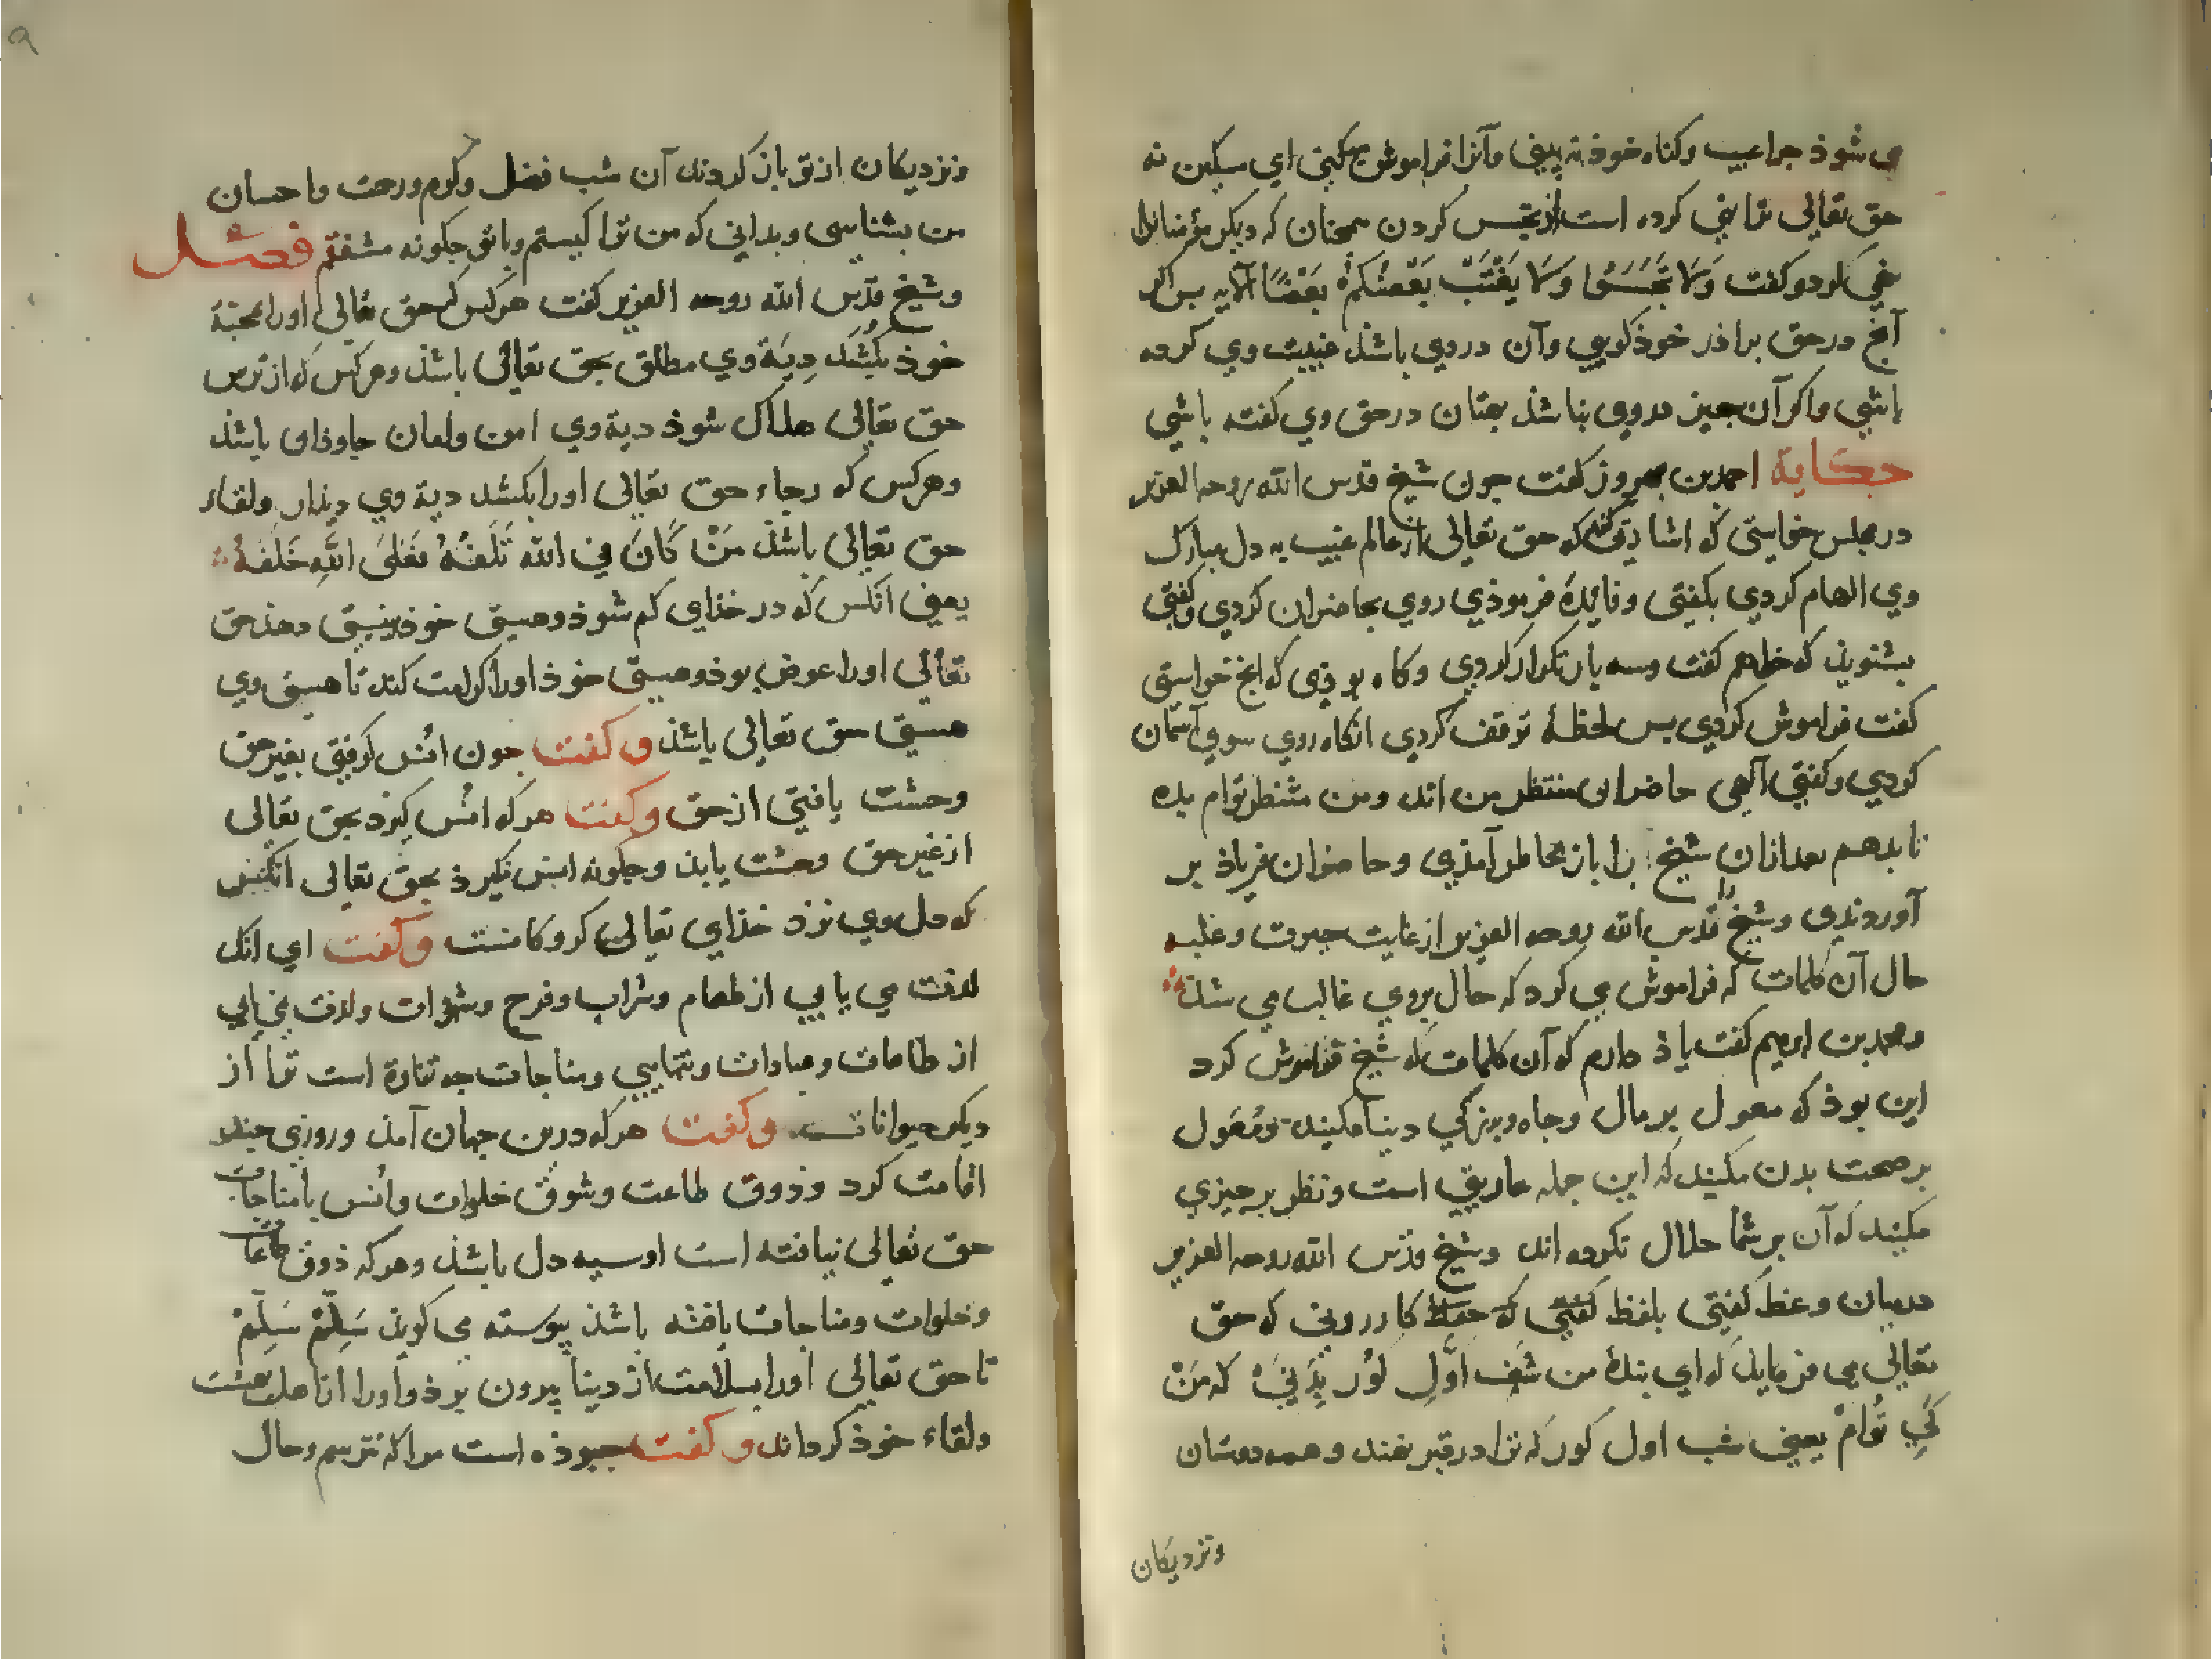 می شوذ جرا عیب وکناه خوذ نه بینی وآنرا فراموش می کنی ای مسکین نه
حق تعالی ترا نهی کرده است از تجسس کردن همجنان که دیکر مؤمنانرا
نهی کرد وکفت وَلَا تَجَسَّسُوا وَلَا يَغْتَبْ بَعْضُكُمْ بَعْضًا الآیه بس اکر
آنج در حق براذر خوذ کویی وآن در وی باشذ غیبت وی کرده
باشی واکر آن جیز در وی نباشذ بهتان در حق وی کفته باشی
حکایة احمد بن بهروز کفت جون شیخ قدس الله روحه العزیز
در مجلس خواستی که اشارتی کند که حق تعالی از عالم غیب به دل مبارک
وی الهام کردی بکفتی وفایدهٔ فرموذی روی بحاضران کردی وکفتی
بشنویذ که خواهم کفت وسه بار تکرار کردی وکاه بوذی که انج خواستی
کفت فراموش کردی بس لحظهٔ توقف کردی انکاه روی سوی آسمان
کردی وکفتی آلهی حاضران منتظر من اند ومن منتظر توام بده
تا بدهم بعد ازان شیخ را باز بخاطر آمذی وحاضران فریاذ بر
آوردندی وشیخ را قدس الله روحه العزیز از غایت حیرت وغلبه
حال آن کلمات که فراموش می کرد که حال بروی غالب می شذ
ومحمد بن ابرهیم کفت یاذ دارم که آن کلمات که شیخ فراموش کرد
این بوذ که معول بر مال وجاه وبزرکی دنیا مکنید ومُعَول
بر صحت بدن مکنید که این جمله عاریتی است ونظر بر جیزی
مکنید که آن بر شما حلال نکرده اند وشیخ قدس الله روحه العزیز
در میان وعظ کفتی بلفظ کفتی که حفظ کازرونی که حق
تعالی می فرماید که ای بندهٔ من شَف اوَّلِ لوُر بِدَنِیْ که مَنْ
کَیِ تُوامْ یعنی شب اول کور که ترا در قبر نهند وهمه دوستان
ونزدیکان
ونزدیکان از تو باز کردند آن شب فضل وکرم ورحمت واحسان
من بشناسی وبدانی که من ترا کیستم وباتو جکونه مشفقم فصل
وشیخ قدس الله روحه العزیز کفت هر کس که حق تعالی اورا بمحبة
خوذ بکُشَد دِیَة وی مطلق بحق تعالی باشذ وهر کس که از ترس
حق تعالی هلاک شوذ دیة وی امن وامان جاوذان باشذ
وهر کس که رجاء حق تعالی اورا بکشد دیة وی دیذار ولقاء
حق تعالی باشذ مَنْ کَانَ فِی الله تَلَفُهُ فَعَلَی اللهِ خَلَفُهُ
یعنی انکس که در خذای کم شوذ وهستی خوذ نیستی دهذ حق
تعالی اورا عوض بوذ وهستی خوذ اورا کرامت کند تا هستی وی
هستی حق تعالی باشذ وکفت جون انس کرفتی بغیر حق
وحشت یافتی از حق وکفت هر که انس کیرد بحق تعالی
از غیر حق وحشت یابذ وجکونه انس نکیرذ بحق تعالی انکس
که دل وی نزد خذای تعالی کروکانست وکفت ای انک
لذت می یابی از طعام وشراب وفرح وشهوات ولذت نمی یابی
از طاعات وعبادات وتنهایی ومناجات جه تفاوة است ترا از
دیکر حیوانات وکفت هر که درین جهان آمذ وروزی جند
اقامت کرد وذوق طاعت وشوق خلوات وانس بامناجات
حق تعالی نیافته است او سیه دل باشذ وهر که ذوق طاعات
وخلوات ومناجات یافته باشذ پیوسته می کویذ سَلِّمْ سَلِّمْ
تا حق تعالی اورا بسلامت از دنیا بیرون برذ واورا اناهل بهشت
ولقاء خوذ کرداند وکفت جبوذه است مرا که نترسم وحال